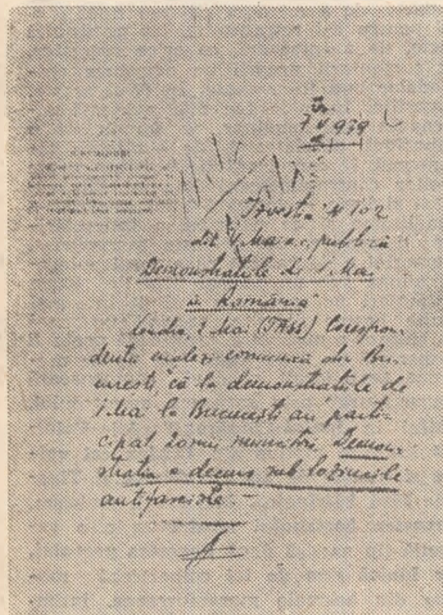 7 V 939
Izvestia N 102
dit 4 Mai a.c. publică
Demonstrațiile de 1 Mai
în România"
Londra, 2 Mai (TASS) Corespon-
denții englezi comunică din Bu-
curești, că la demonstrațiile de
1 Mai la București au parti-
cipat 20 mii muncitori. Demon-
strația a decurs sub lozincile
antifasciste.